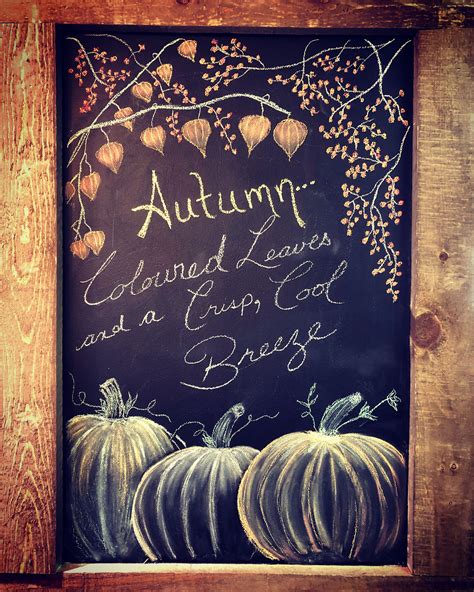 Autumn...
Coloured Leaves
and a Crisp, Cool
Breeze